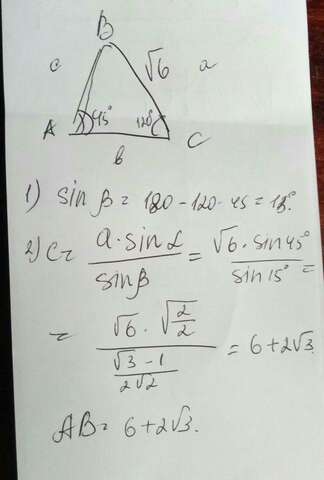 B
c √6 a
A 45° 120° C
b
1) sin β = 180 - 120 - 45 = 15°.
2) C = a · sin α / sin β = √6 · sin 45° / sin 15° =
= √6 · √(2/2) / ((√3 - 1) / (2√2)) = 6 + 2√3.
AB = 6 + 2√3.